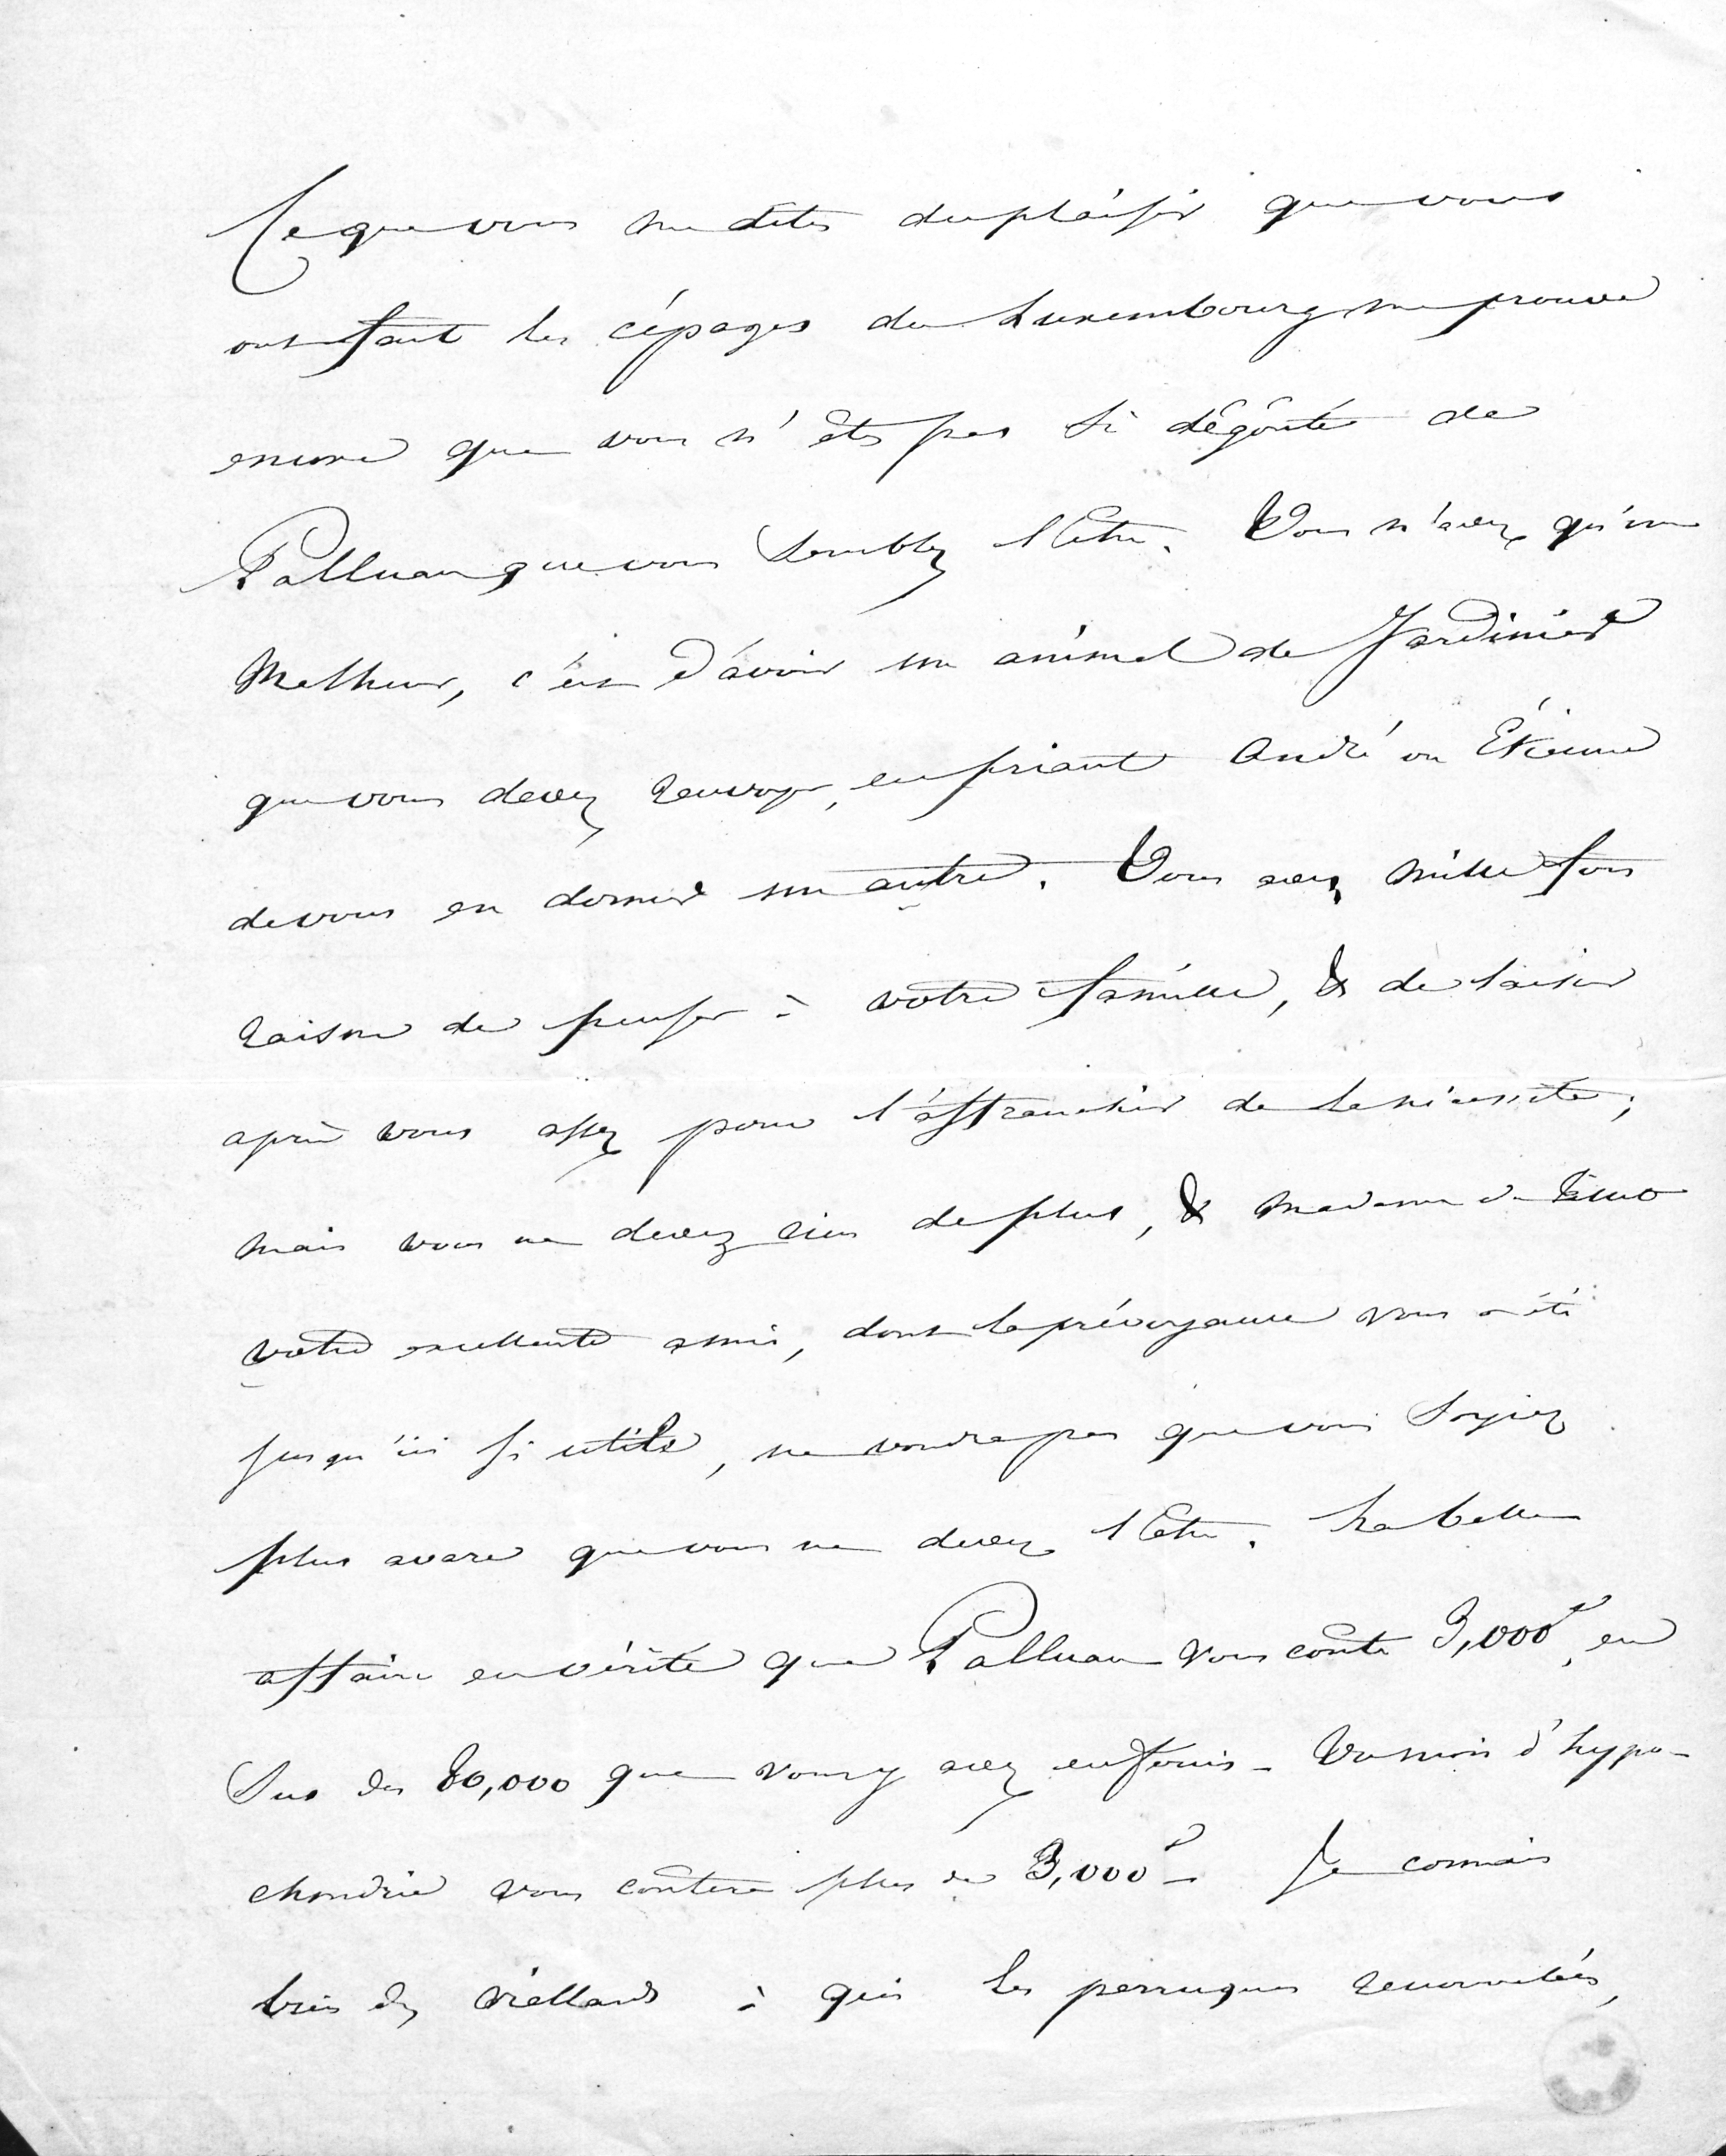 Ce que vous me dites du plaisir que vous
ont fait les cépages du Luxembourg me prouve
encore que vous n'êtes pas si dégoûté de
Palluau que vous semblez l'être. Vous n'avez qu'un
malheur, c'est d'avoir un animal de Jardinier
que vous devez renvoyer, en priant André ou Étienne
de vous en donner un autre. Vous avez mille fois
raison de penser à votre famille, & de laisser
après vous assez pour l'affranchir de la nécessité;
mais vous ne devez rien de plus, & madame de
votre excellente amie, dont la prévoyance vous a été
jusqu'ici si utile, ne voudra pas que vous soyiez
plus avare que vous ne devez l'être. La belle
affaire en vérité que Palluau vous coûte 3,000f, en
sus des 80,000 que vous y avez enfouis - Un mois d'hypo-
chondrie vous coûtera plus de 3,000f - Je connais
bien des vieillards à qui les perruques renouvelées,